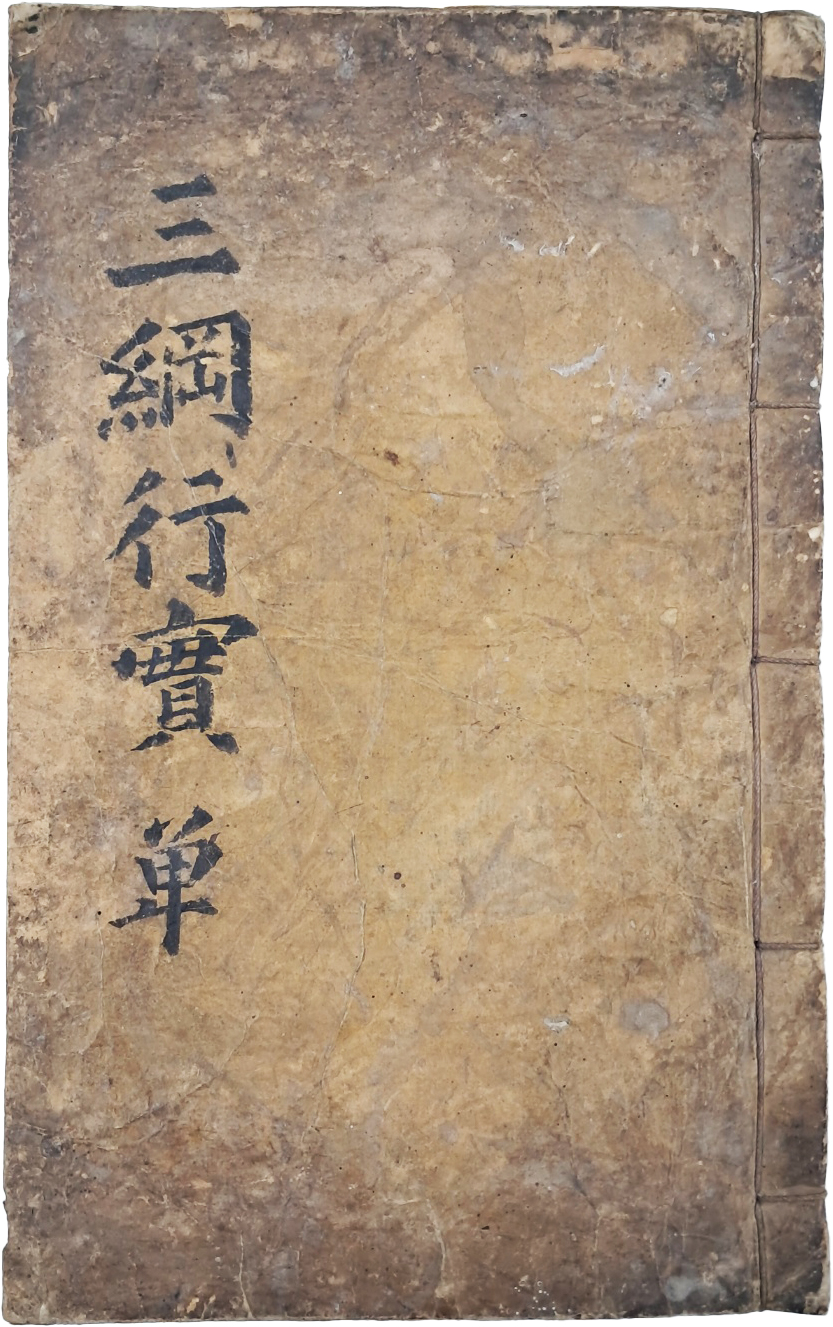 三綱行實 单